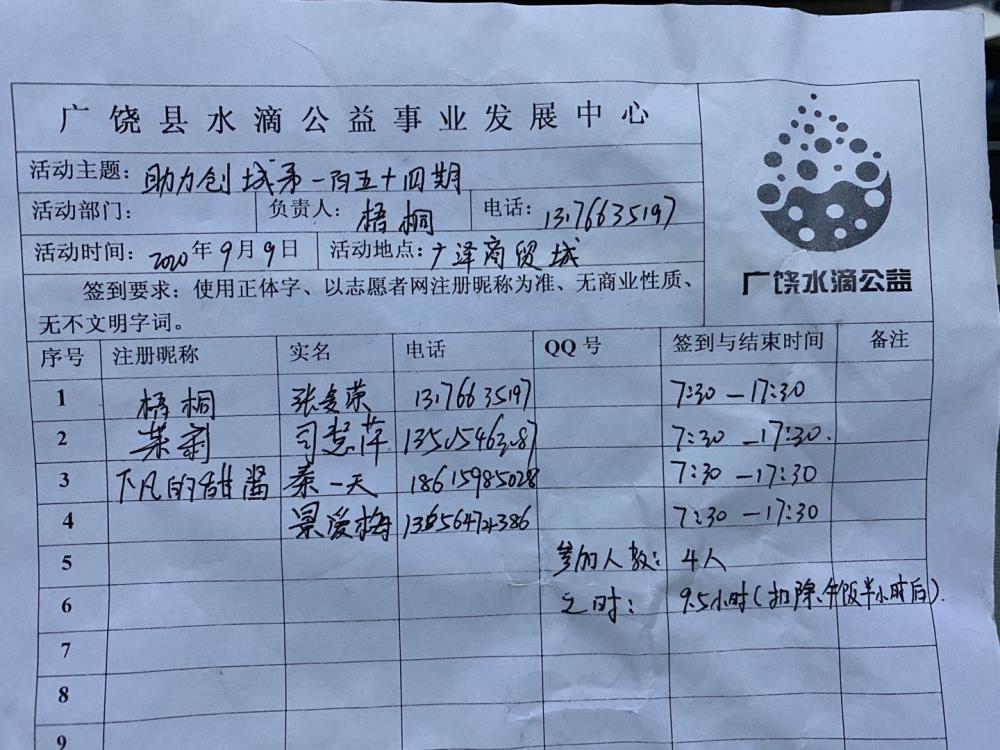 广饶县水滴公益事业发展中心
活动主题：助力创城第一百五十四期
活动部门： 负责人：梧桐 电话：13176635197
活动时间：2020年9月9日 活动地点：广泽商贸城
签到要求：使用正体字、以志愿者网注册昵称为准、无商业性质、
无不文明字词。
广饶水滴公益
序号 注册昵称 实名 电话 QQ号 签到与结束时间 备注
1 梧桐 张爱荣 13176635197 7:30—17:30
2 茉莉 司慧萍 7:30—17:30.
3 下凡的甜酱 秦一天 18615985028 7:30—17:30
4 景爱梅 7:30—17:30
5 参加人数：4人
6 时：9.5小时（扣除午饭半小时后）.
7
8
9